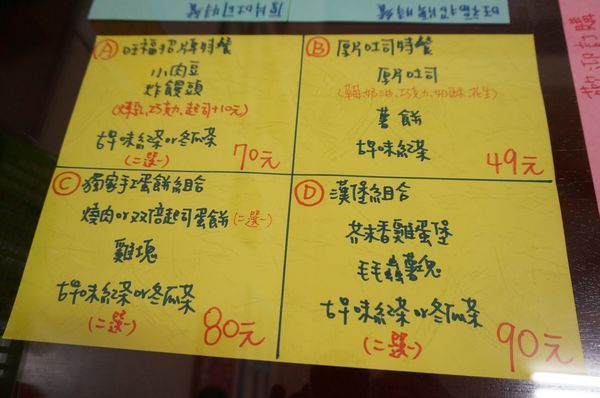 厚片吐司特餐
旺福招牌特餐
歡迎訂購
Ⓐ 旺福招牌特餐
小肉豆
炸饅頭
(煉乳,巧克力,起司+10元)
古早味紅茶or冬瓜茶
(二選一)
70元
Ⓑ 厚片吐司特餐
厚片吐司
(草莓,奶油,巧克力,奶酥,花生)
薯餅
古早味紅茶
49元
Ⓒ 獨家手工蛋餅組合
燒肉or双倍起司蛋餅(二選一)
雞塊
古早味紅茶or冬瓜茶
(二選一)
80元
Ⓓ 漢堡組合
芥末香雞蛋堡
毛毛蟲薯兒
古早味紅茶or冬瓜茶
(二選一)
90元